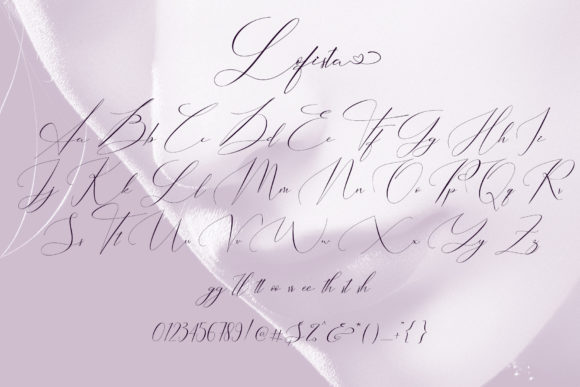 Lofista
Aa Bb Cc Dd Ee Ff Gg Hh Ii
Jj Kk Ll Mm Nn Oo Pp Qq Rr
Ss Tt Uu Vv Ww Xx Yy Zz
gg ll tt oo ss ee th st sh
0123456789!@#$%^&*()_+{}